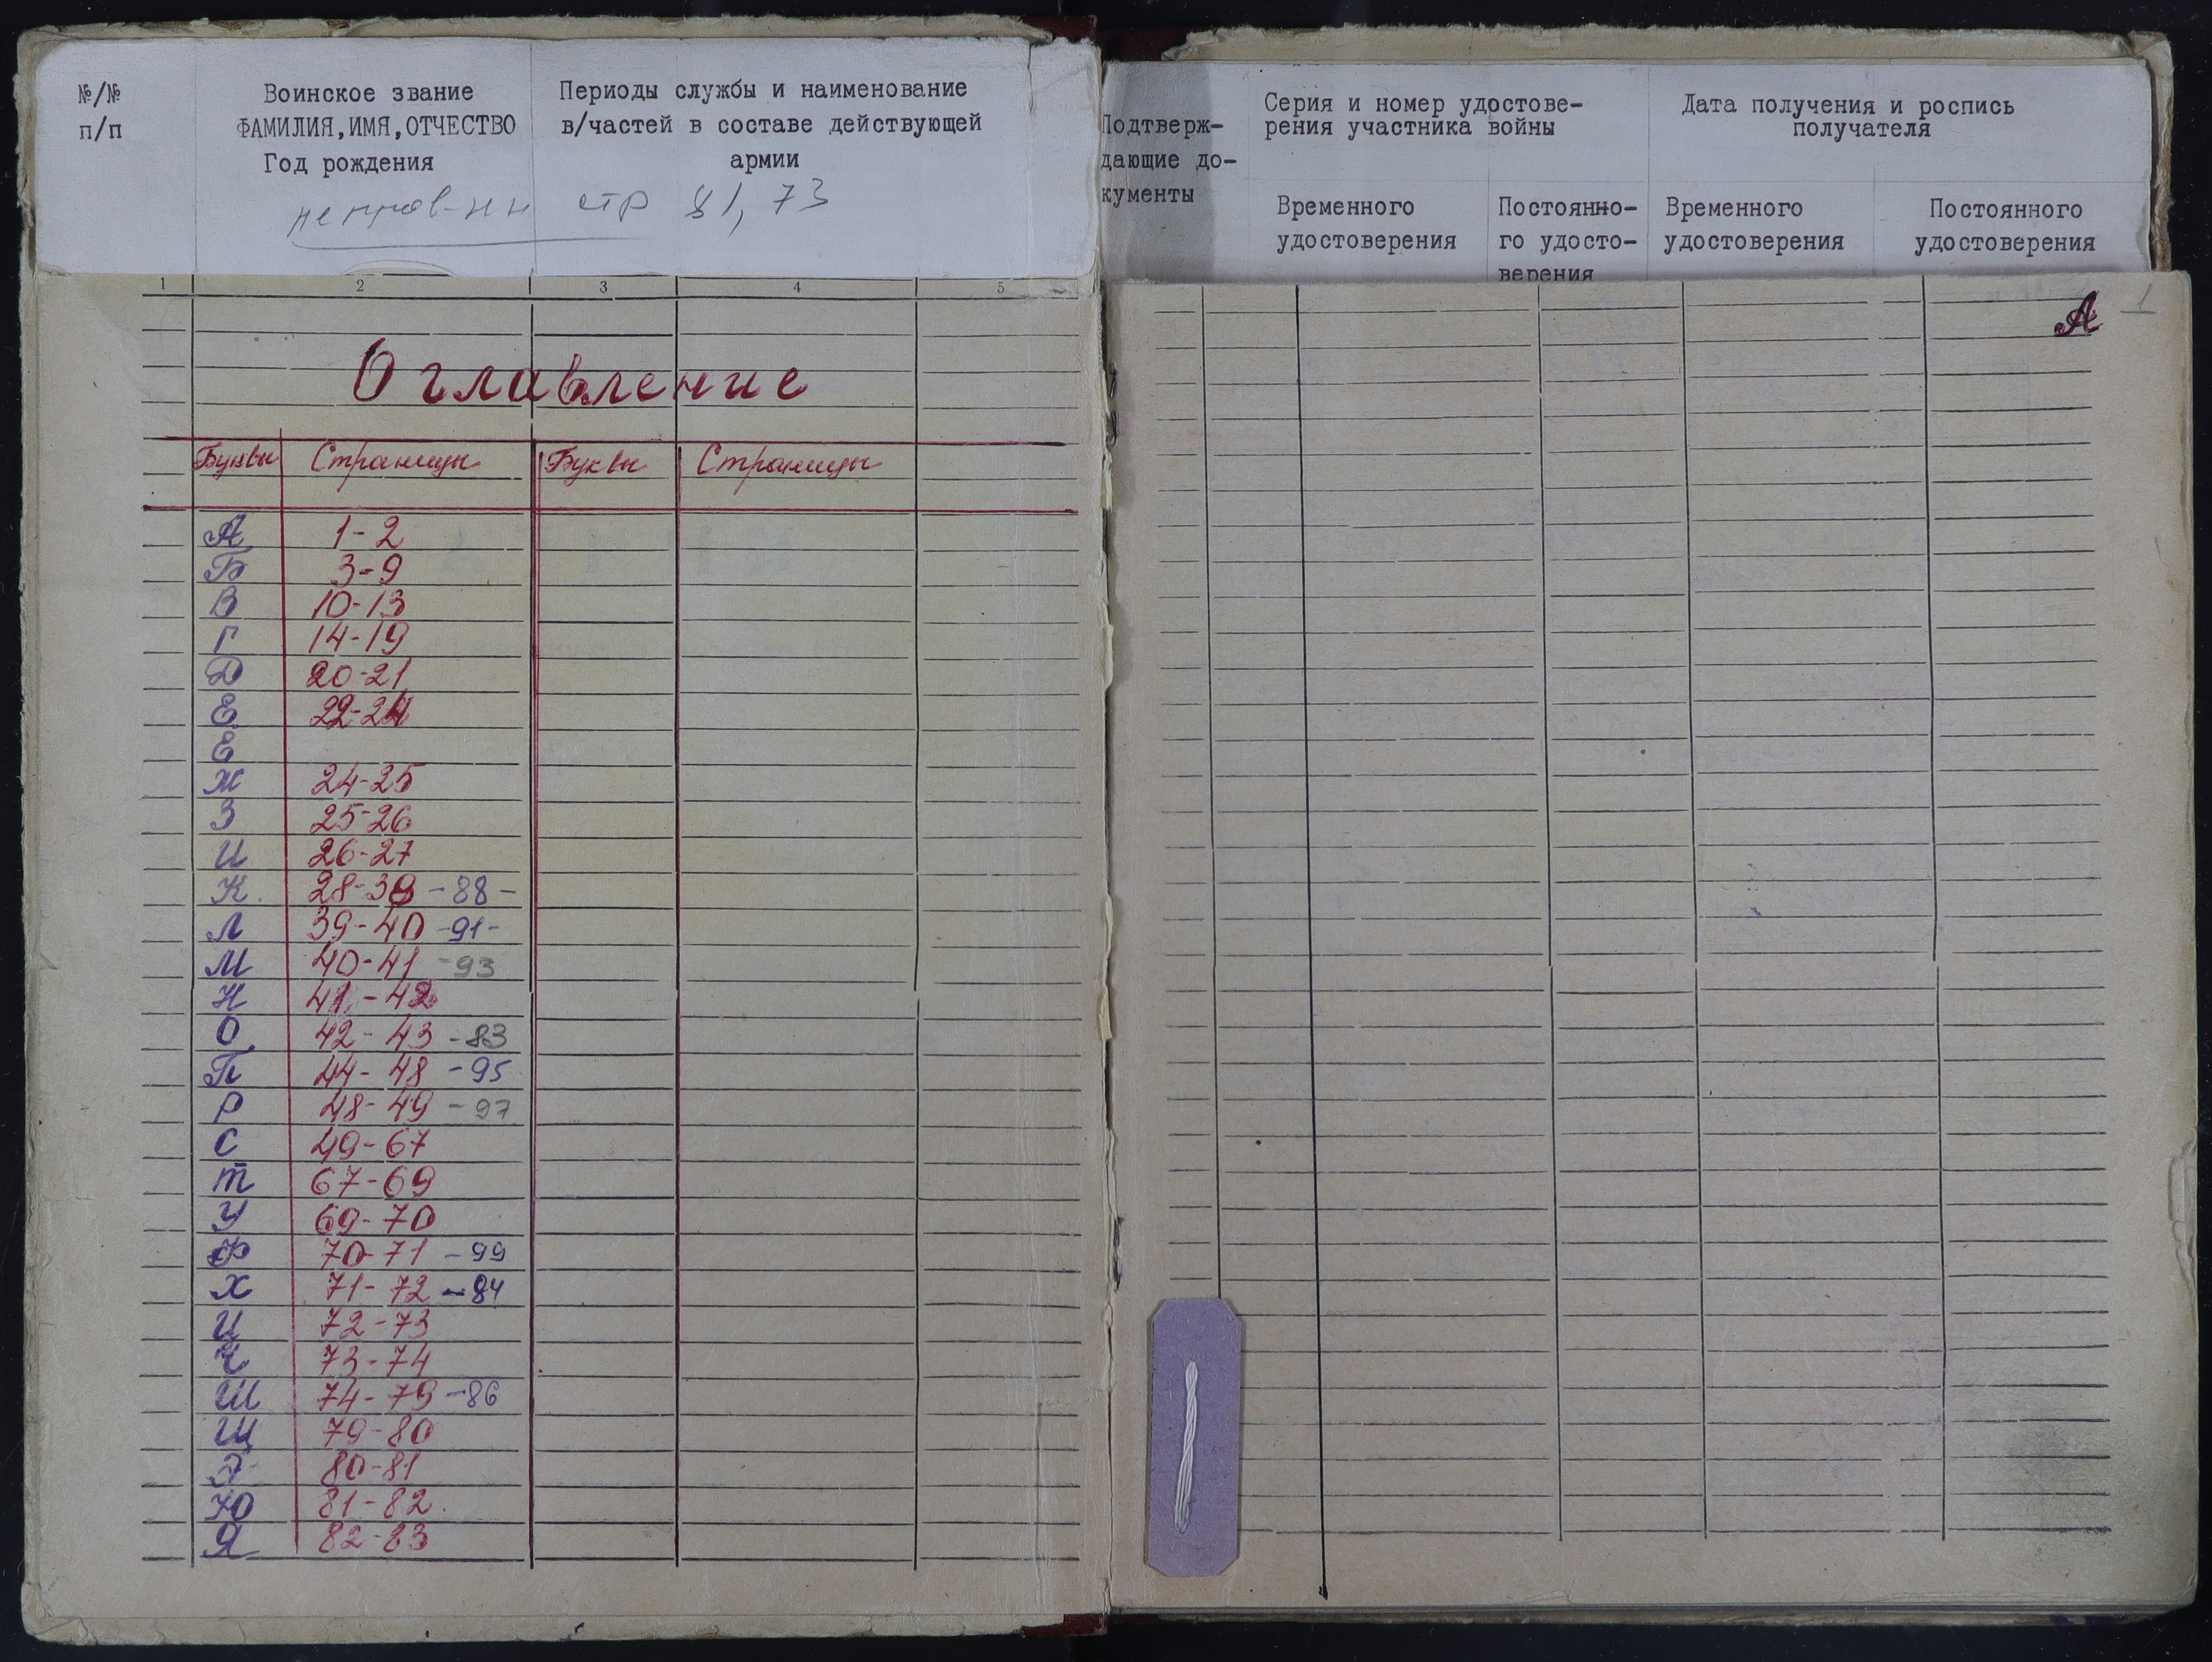 №/№
п/п
Воинское звание
ФАМИЛИЯ,ИМЯ,ОТЧЕСТВО
Год рождения
Периоды службы и наименование
в/частей в составе действующей
армии
стр 81, 73
1 2 3 4 5
Оглавление
Буквы Страницы Буквы Страницы
А 1-2
Б 3-9
В 10-13
Г 14-19
Д 20-21
Е 22-24
Е
Ж 24-25
З 25-26
И 26-27
К. 28-38 -88-
Л 39-40 -91-
М 40-41 -93
Н 41-42
О 42-43 -83
П 44-48 -95
Р 48-49 -97
С 49-67
Т 67-69
У 69-70
Ф 70-71 -99
Х 71-72 -84
Ц 72-73
Ч 73-74
Ш 74-79 -86
Щ 79-80
Э 80-81
Ю 81-82.
Я 82-83
Подтверж-
дающие до-
кументы
Серия и номер удостове-
рения участника войны
Дата получения и роспись
получателя
Временного
удостоверения
Постоянно-
го удосто-
верения
Временного
удостоверения
Постоянного
удостоверения
А 1